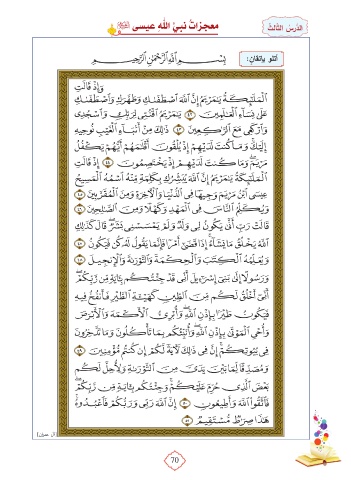 الدرس الثالث
معجزات نبيِّ الله عيسى ﷺ
أتلو بإتقان:
بِسْمِ ٱللَّهِ ٱلرَّحْمَٰنِ ٱلرَّحِيمِ
وَإِذْ قَالَتِ
ٱلْمَلَٰٓئِكَةُ يَٰمَرْيَمُ إِنَّ ٱللَّهَ ٱصْطَفَىٰكِ وَطَهَّرَكِ وَٱصْطَفَىٰكِ
عَلَىٰ نِسَآءِ ٱلْعَٰلَمِينَ ٤٢ يَٰمَرْيَمُ ٱقْنُتِى لِرَبِّكِ وَٱسْجُدِى
وَٱرْكَعِى مَعَ ٱلرَّٰكِعِينَ ٤٣ ذَٰلِكَ مِنْ أَنۢبَآءِ ٱلْغَيْبِ نُوحِيهِ
إِلَيْكَ وَمَا كُنتَ لَدَيْهِمْ إِذْ يُلْقُونَ أَقْلَٰمَهُمْ أَيُّهُمْ يَكْفُلُ
مَرْيَمَ وَمَا كُنتَ لَدَيْهِمْ إِذْ يَخْتَصِمُونَ ٤٤ إِذْ قَالَتِ
ٱلْمَلَٰٓئِكَةُ يَٰمَرْيَمُ إِنَّ ٱللَّهَ يُبَشِّرُكِ بِكَلِمَةٍ مِّنْهُ ٱسْمُهُ ٱلْمَسِيحُ
عِيسَى ٱبْنُ مَرْيَمَ وَجِيهًا فِى ٱلدُّنْيَا وَٱلْءَاخِرَةِ وَمِنَ ٱلْمُقَرَّبِينَ ٤٥
وَيُكَلِّمُ ٱلنَّاسَ فِى ٱلْمَهْدِ وَكَهْلًا وَمِنَ ٱلصَّٰلِحِينَ ٤٦
قَالَتْ رَبِّ أَنَّىٰ يَكُونُ لِى وَلَدٌ وَلَمْ يَمْسَسْنِى بَشَرٌ قَالَ كَذَٰلِكِ
ٱللَّهُ يَخْلُقُ مَا يَشَآءُ إِذَا قَضَىٰٓ أَمْرًا فَإِنَّمَا يَقُولُ لَهُۥ كُن فَيَكُونُ ٤٧
وَيُعَلِّمُهُ ٱلْكِتَٰبَ وَٱلْحِكْمَةَ وَٱلتَّوْرَىٰةَ وَٱلْإِنجِيلَ ٤٨
وَرَسُولًا إِلَىٰ بَنِىٓ إِسْرَٰٓءِيلَ أَنِّى قَدْ جِئْتُكُم بِـَٔايَةٍ مِّن رَّبِّكُمْ
أَنِّىٓ أَخْلُقُ لَكُم مِّنَ ٱلطِّينِ كَهَيْـَٔةِ ٱلطَّيْرِ فَأَنفُخُ فِيهِ
فَيَكُونُ طَيْرًۢا بِإِذْنِ ٱللَّهِ وَأُبْرِئُ ٱلْأَكْمَهَ وَٱلْأَبْرَصَ
وَأُحْىِ ٱلْمَوْتَىٰ بِإِذْنِ ٱللَّهِ وَأُنَبِّئُكُم بِمَا تَأْكُلُونَ وَمَا تَدَّخِرُونَ
فِى بُيُوتِكُمْ إِنَّ فِى ذَٰلِكَ لَءَايَةً لَّكُمْ إِن كُنتُم مُّؤْمِنِينَ ٤٩
وَمُصَدِّقًا لِّمَا بَيْنَ يَدَىَّ مِنَ ٱلتَّوْرَىٰةِ وَلِأُحِلَّ لَكُم
بَعْضَ ٱلَّذِى حُرِّمَ عَلَيْكُمْ وَجِئْتُكُم بِـَٔايَةٍ مِّن رَّبِّكُمْ
فَٱتَّقُوا۟ ٱللَّهَ وَأَطِيعُونِ ٥٠ إِنَّ ٱللَّهَ رَبِّى وَرَبُّكُمْ فَٱعْبُدُوهُ
هَٰذَا صِرَٰطٌ مُّسْتَقِيمٌ ٥١
[آل عمران]
70